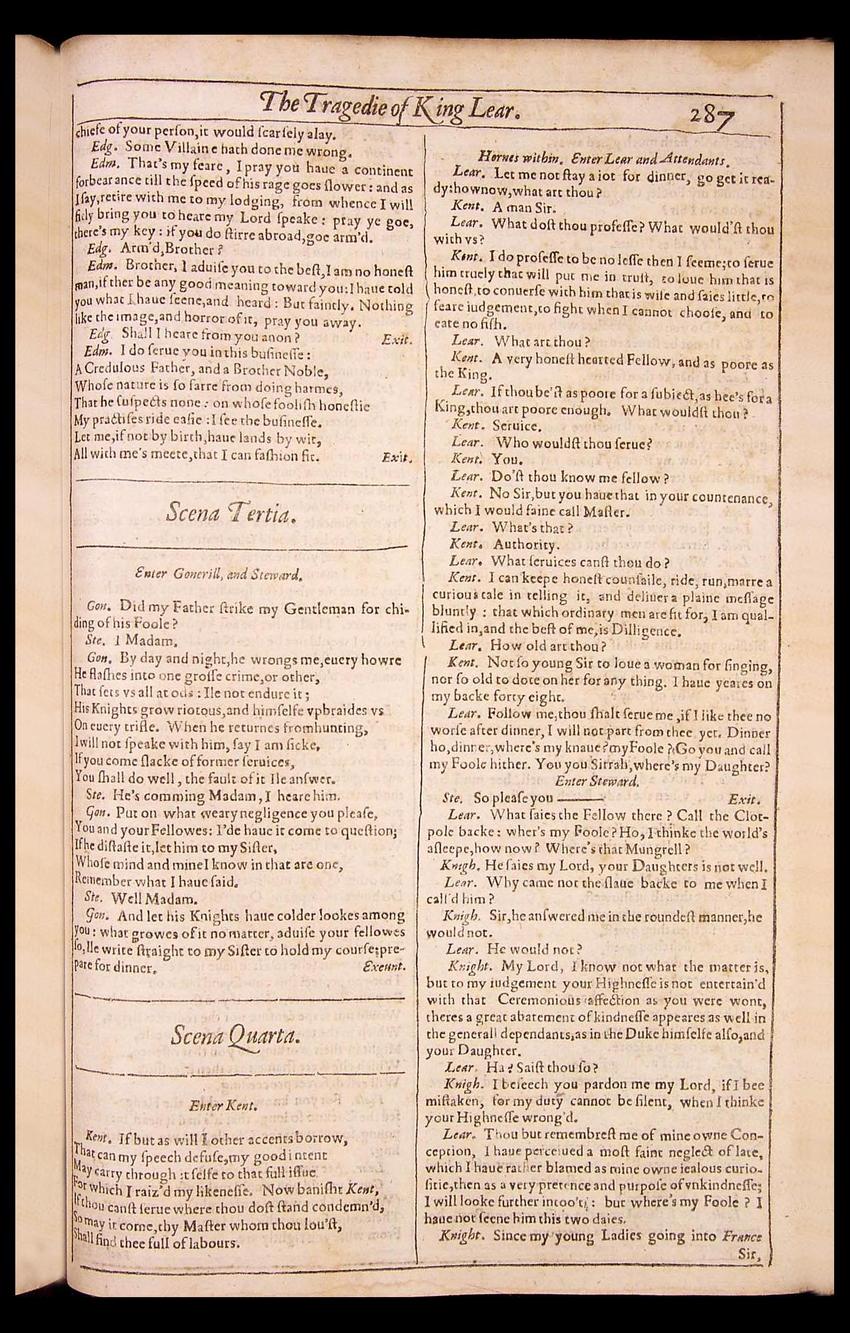 The Tragedie of King Lear. 287
chiefe of your perſon, it would ſcarſely alay.
Edg. Some Villaine hath done me wrong.
Edm. That's my feare, I pray you haue a continent
forbearance till the ſpeed of his rage goes ſlower: and as
I ſay, retire with me to my lodging, from whence I will
fitly bring you to heare my Lord ſpeake: pray ye goe,
there's my key: if you do ſtirre abroad, goe arm'd.
Edg. Arm'd, Brother?
Edm. Brother, I aduiſe you to the beſt, I am no honeſt
man, if ther be any good meaning toward you: I haue told
you what I haue ſeene, and heard: But faintly. Nothing
like the image, and horror of it, pray you away.
Edg. Shall I heare from you anon? Exit.
Edm. I do ſerue you in this buſineſſe:
A Credulous Father, and a Brother Noble,
Whoſe nature is ſo farre from doing harmes,
That he ſuſpects none: on whoſe fooliſh honeſtie
My practiſes ride eaſie: I ſee the buſineſſe.
Let me, if not by birth, haue lands by wit,
All with me's meete, that I can faſhion fit. Exit.
Scena Tertia.
Enter Gonerill, and Steward.
Gon. Did my Father ſtrike my Gentleman for chi-
ding of his Foole?
Ste. I Madam.
Gon. By day and night, he wrongs me, euery howre
He flaſhes into one groſſe crime, or other,
That ſets vs all at ods: Ile not endure it;
His Knights grow riotous, and himſelfe vpbraides vs
On euery trifle. When he returnes from hunting,
I will not ſpeake with him, ſay I am ſicke,
If you come ſlacke of former ſeruices,
You ſhall do well, the fault of it Ile anſwer.
Ste. He's comming Madam, I heare him.
Gon. Put on what weary negligence you pleaſe,
You and your Fellowes: I'de haue it come to queſtion;
If he diſtaſte it, let him to my Siſter,
Whoſe mind and mine I know in that are one,
Remember what I haue ſaid.
Ste. Well Madam.
Gon. And let his Knights haue colder lookes among
you: what growes of it no matter, aduiſe your fellowes
ſo, Ile write ſtraight to my Siſter to hold my courſe; pre-
pare for dinner. Exeunt.
Scena Quarta.
Enter Kent.
Kent. If but as will I other accents borrow,
That can my ſpeech defuſe, my good intent
May carry through it ſelfe to that full iſſue
For which I raiz'd my likeneſſe. Now baniſht Kent,
If thou canſt ſerue where thou doſt ſtand condemn'd,
So may it come, thy Maſter whom thou lou'ſt,
Shall find thee full of labours.
Hornes within. Enter Lear and Attendants.
Lear. Let me not ſtay a iot for dinner, go get it rea-
dy: how now, what art thou?
Kent. A man Sir.
Lear. What doſt thou profeſſe? What would'ſt thou
with vs?
Kent. I do profeſſe to be no leſſe then I ſeeme; to ſerue
him truely that will put me in truſt, to loue him that is
honeſt, to conuerſe with him that is wiſe and ſaies little, to
feare iudgement, to fight when I cannot chooſe, and to
eate no fiſh.
Lear. What art thou?
Kent. A very honeſt hearted Fellow, and as poore as
the King.
Lear. If thou be'ſt as poore for a ſubiect, as hee's for a
King, thou art poore enough. What wouldſt thou?
Kent. Seruice.
Lear. Who wouldſt thou ſerue?
Kent. You.
Lear. Do'ſt thou know me fellow?
Kent. No Sir, but you haue that in your countenance,
which I would faine call Maſter.
Lear. What's that?
Kent. Authority.
Lear. What ſeruices canſt thou do?
Kent. I can keepe honeſt counſaile, ride, run, marre a
curious tale in telling it, and deliuer a plaine meſſage
bluntly: that which ordinary men are fit for, I am qual-
lified in, and the beſt of me, is Dilligence.
Lear. How old art thou?
Kent. Not ſo young Sir to loue a woman for ſinging,
nor ſo old to dote on her for any thing. I haue yeares on
my backe forty eight.
Lear. Follow me, thou ſhalt ſerue me, if I like thee no
worſe after dinner, I will not part from thee yet. Dinner
ho, dinner, where's my knaue? my Foole? Go you and call
my Foole hither. You you Sirrah, where's my Daughter?
Enter Steward.
Ste. So pleaſe you —— Exit.
Lear. What ſaies the Fellow there? Call the Clot-
pole backe: wher's my Foole? Ho, I thinke the world's
aſleepe, how now? Where's that Mungrell?
Knigh. He ſaies my Lord, your Daughters is not well.
Lear. Why came not the ſlaue backe to me when I
call'd him?
Knigh. Sir, he anſwered me in the roundeſt manner, he
would not.
Lear. He would not?
Knight. My Lord, I know not what the matter is,
but to my iudgement your Highneſſe is not entertain'd
with that Ceremonious affection as you were wont,
theres a great abatement of kindneſſe appeares as well in
the generall dependants, as in the Duke himſelfe alſo, and
your Daughter.
Lear. Ha? Saiſt thou ſo?
Knigh. I beſeech you pardon me my Lord, if I bee
miſtaken, for my duty cannot be ſilent, when I thinke
your Highneſſe wrong'd.
Lear. Thou but remembreſt me of mine owne Con-
ception, I haue perceiued a moſt faint neglect of late,
which I haue rather blamed as mine owne iealous curio-
ſitie, then as a very pretence and purpoſe of vnkindneſſe;
I will looke further intoo't: but where's my Foole? I
haue not ſeene him this two daies.
Knight. Since my young Ladies going into France
Sir,